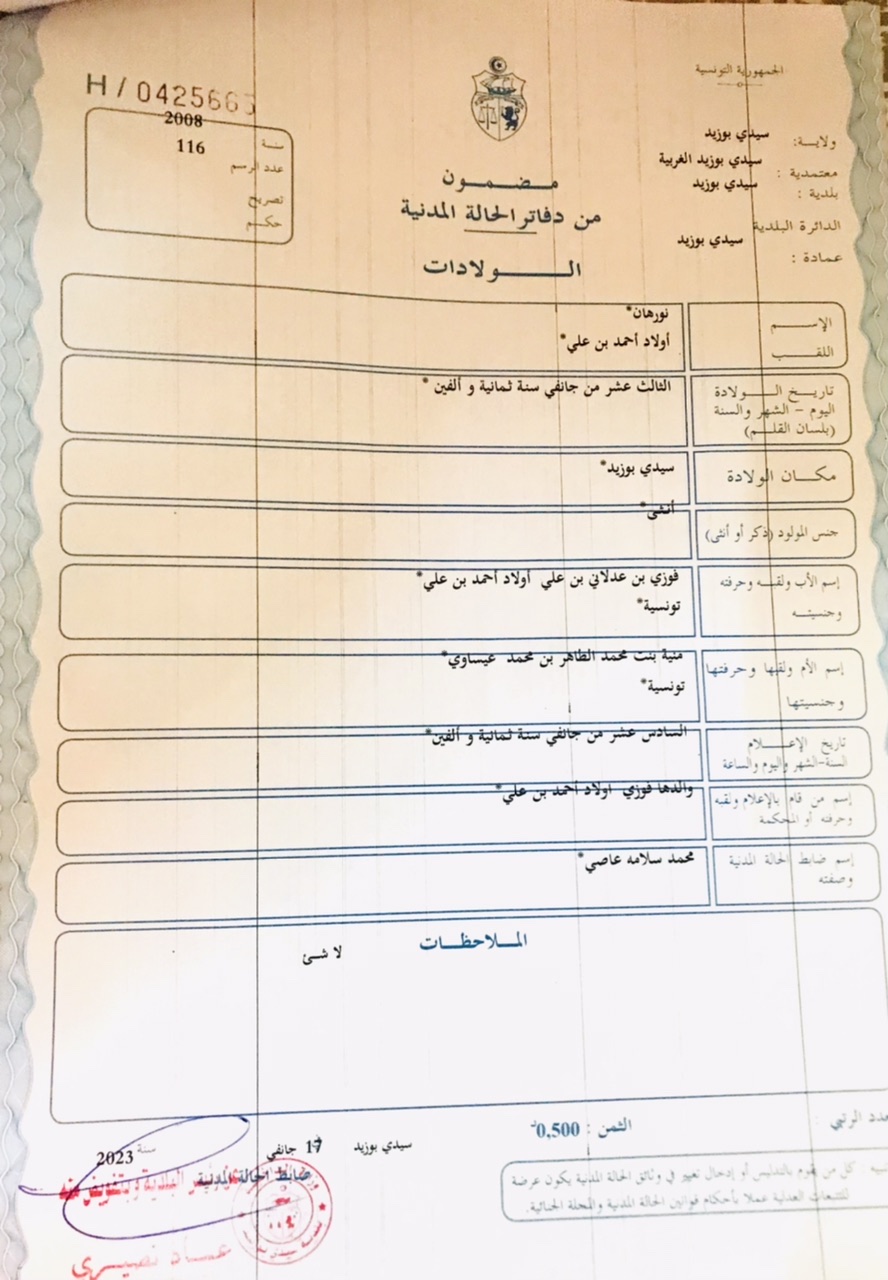 الجمهورية التونسية
H / 042566
ولاية: سيدي بوزيد
معتمدية : سيدي بوزيد الغربية
بلدية : سيدي بوزيد
الدائرة البلدية سيدي بوزيد
عمادة :
سنة 2008
عدد الرسم 116
تصريح
حكم
مضمون
من دفاتر الحالة المدنية
الولادات
الإسم نورهان*
اللقب أولاد أحمد بن علي*
تاريخ الولادة الثالث عشر من جانفي سنة ثمانية و ألفين *
اليوم - الشهر والسنة
(بلسان القلم)
مكان الولادة سيدي بوزيد*
جنس المولود (ذكر أو أنثى) أنثى*
إسم الأب ولقبه وحرفته فوزي بن عدلاني بن علي أولاد أحمد بن علي*
وجنسيته تونسية*
إسم الأم ولقبها وحرفتها منية بنت محمد الطاهر بن محمد عيساوي*
وجنسيتها تونسية*
تاريخ الإعلام السادس عشر من جانفي سنة ثمانية و ألفين*
السنة-الشهر واليوم والساعة
إسم من قام بالإعلام ولقبه والدها فوزي اولاد أحمد بن علي*
وحرفته أو المحكمة
إسم ضابط الحالة المدنية محمد سلامه عاصي*
وصفته
الملاحظات
لا شئ
عدد الرتبي :
الثمن : 0,500د
سيدي بوزيد 17 جانفي سنة 2023
ضابط الحالة المدنية
كل من يقوم بالتدليس أو إدخال تغيير في وثائق الحالة المدنية يكون عرضة
للتتبعات العدلية عملا بأحكام قوانين الحالة المدنية والمجلة الجنائية.
البلدية وبتفويض منه
عماد نصيري